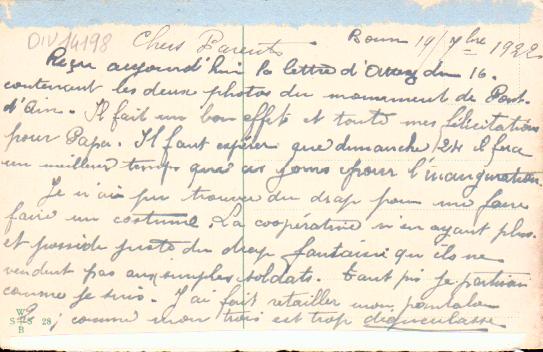 DIV14198
Chers Parents Bonn 19/7bre 1922
Reçu aujourd'hui la lettre d'Attez du 16.
contenant les deux photos du monument de Pont-
d'Ain. Il fait un bon effet et toute mes félicitations
pour Papa. Il faut espérer que dimanche 24 il fera
un meilleur temps que ces jours pour l'inauguration.
Je n'ai pu trouver du drap pour me faire
faire un costume. La coopérative n'en ayant plus.
et possède juste du drap fantaisie qu'ils ne
vendent pas aux simples soldats. Tant pis je partirai
comme je suis. J'ai fait retailler mon pantalon
; comme mon trois est trop dégueulasse
W
S S 28
B